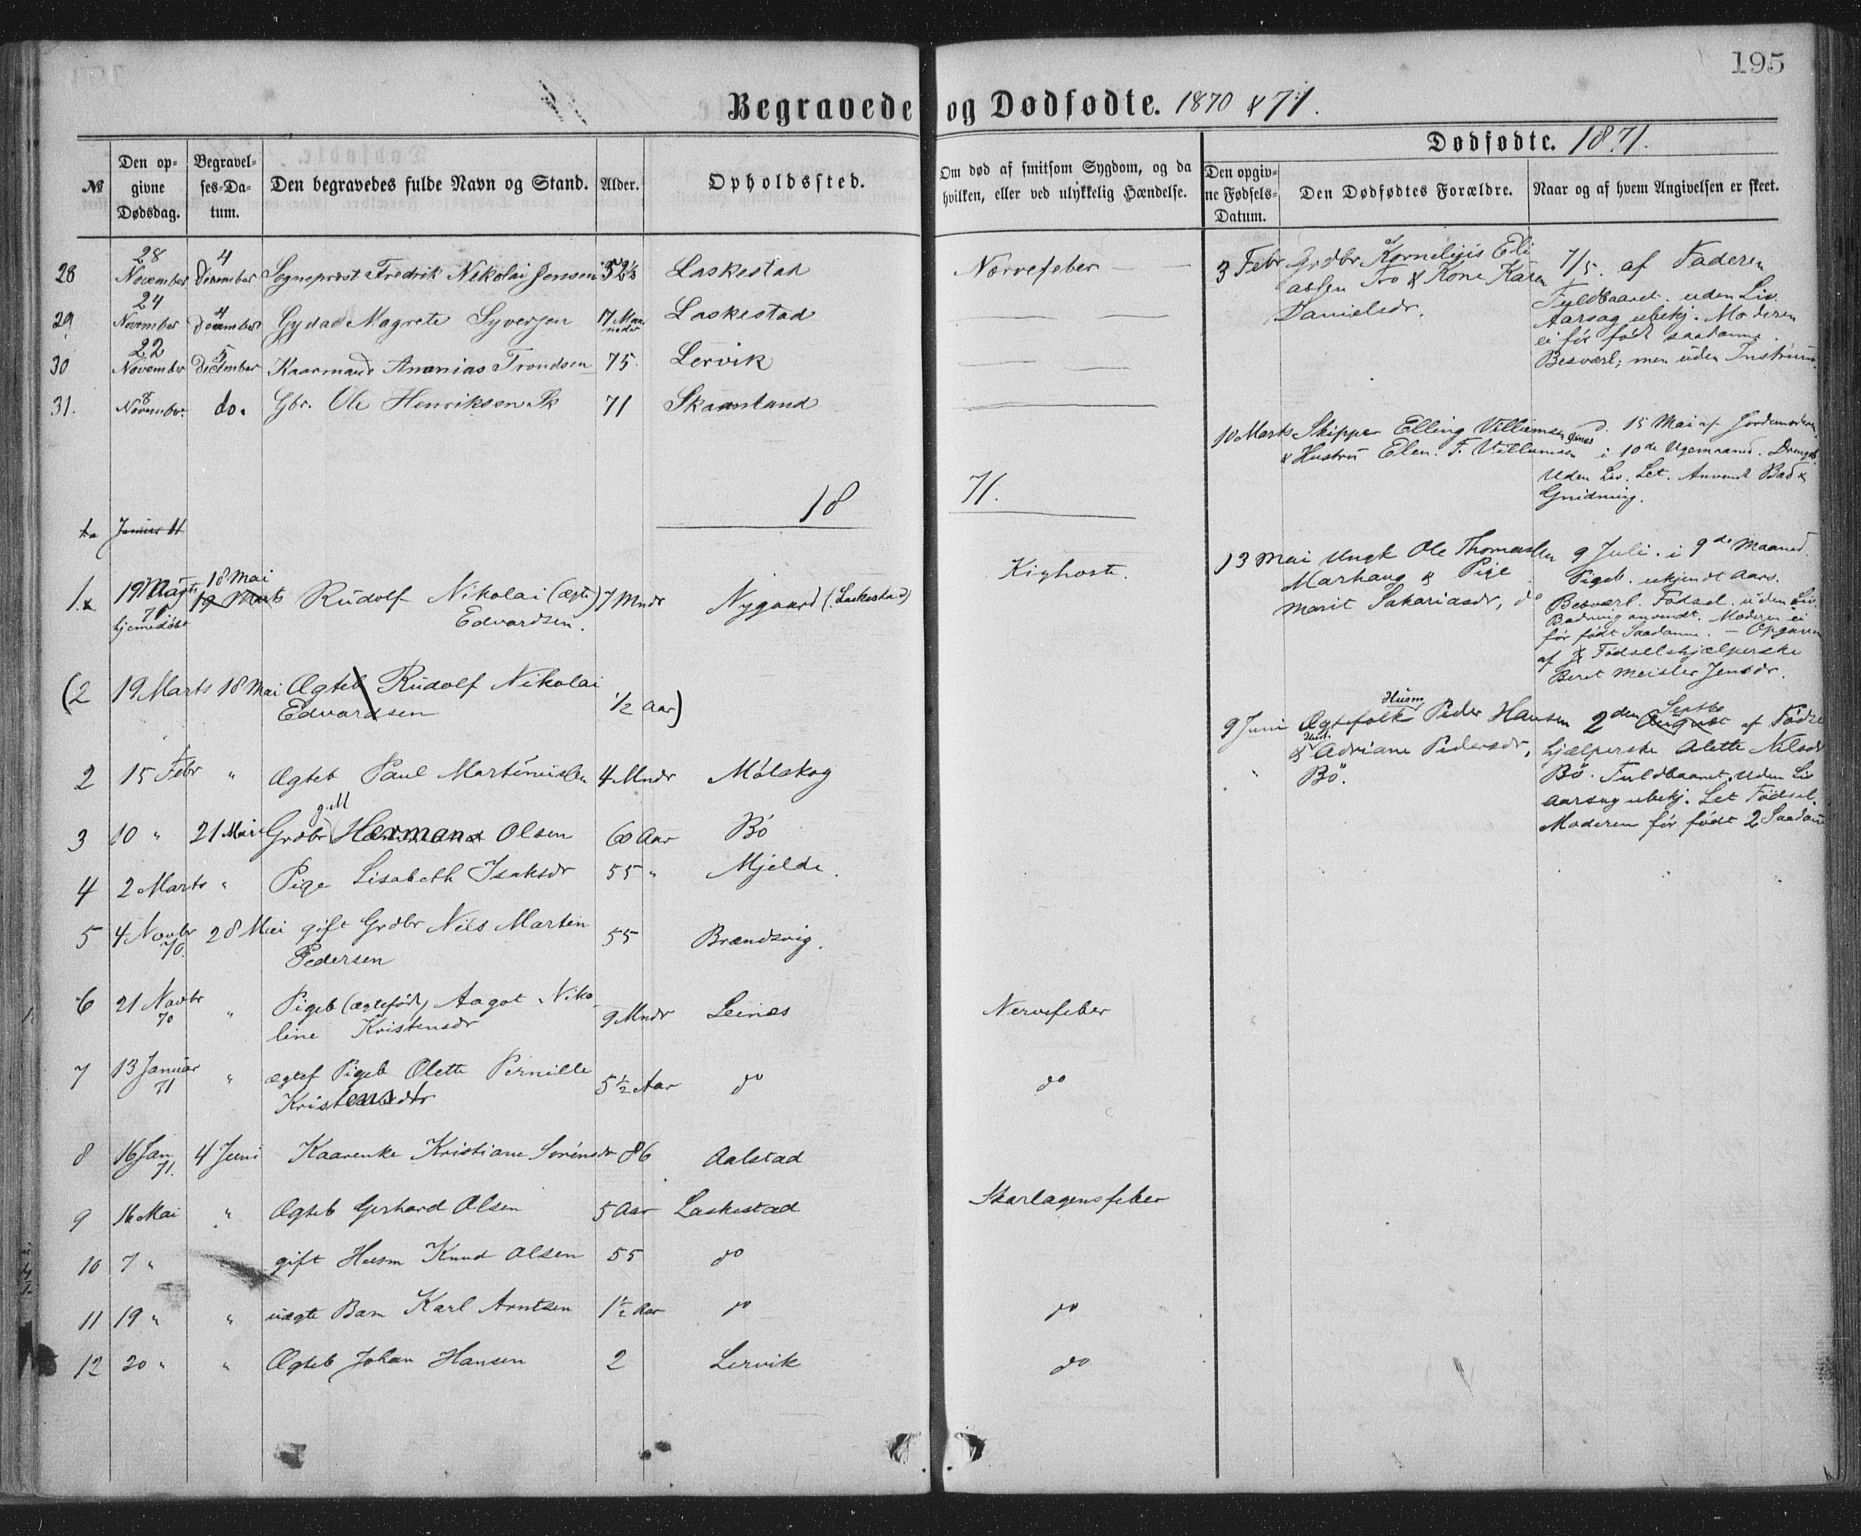 195
Begravede og Dødfødte. 1870 & 71.
Dødfødte. 1871.
№
Den op-
givne
Dødsdag.
Begravel-
ses-Da-
tum.
Den begravedes fulde Navn og Stand.
Alder.
Opholdssted.
Om død af smitsom Sygdom, og da
hvilken, eller ved ulykkelig Hændelse.
Den opgiv-
ne Fødsels-
Datum.
Den Dødfødtes Forældre.
Naar og af hvem Angivelsen er skeet.
28 28 November 4 December Sogneprest Fredrik Nikolai Jensen Laskestad Nervefeber
29 24 November 4 December Gydad Magrete Syversen 17 Maaneder Laskestad
30 22 November 5 December Kaarmand Ananias Trondsen 75. Lervik
31. 8 November. do. Gbr. Ole Henriksen Sk 71 Skaanland
18 71.
1a Januar 11
1. 19 Marts 71 hjemmedøbt 18 Mai 19 Marts Rudolf Nikolai (ægte) 7 Mndr Nygaard (Laskestad) Kighoste.
Edvardsen.
(2 19 Marts 18 Mai Ægteb Rudolf Nikolai
Edvardsen 1/2 Aar)
2 15 Febr " Ægteb Paul Martinussen 4 Mndr Mölskog
3 10 " 21 Mai Grdbr gift Herman Olsen 60 Aar Bö
4 2 Marts " Pige Lisabeth Isaksdr 55 " Mjelde.
5 4 Novbr 70. 28 Mai gift Grdbr Nils Martin 55 Brændsvig.
Pedersen
6 21 Novbr 70 " Pigeb (ægtefødt) Aagot Niko-
line Kristensdr 9 Mndr Leines Nervefeber
7 13 Januar 71 " ægtef Pigeb Olette Pernille
Kristensdtr 5 1/2 Aar do do
8 16 Jan 71. 4 Juni Kaarenke Kristiane Sörensdr 86 Aalstad
9 16 Mai " Ægteb Gerhard Olsen 5 Aar Laskestad Skarlagensfeber
10 7 " gift Husm Knud Olsen 55 do
11 19 " " uægte Barn Karl Arntsen 1 1/2 Aar do do
12 20 " " Ægteb Johan Hansen 2 Lervik do
3 Febr Grdbr Kornelius Eli-
assen Fro & Kone Karen
Danielsdr.
7/5. af Faderen
Fuldbaaret. uden Liv.
Aarsag ubekj. Moderen
ei för födt saadanne.
Besværl; men uden Instrum.
10 Marts Skipper Elling Villumsen
& Hustru Elen. F. Villumsen
d. 15 Mai af Jordemoderen.
i 10de Ugemaaned. Drengeb.
Uden Liv. Let. Anvendt Bad &
Gnidning.
13 Mai Ungk Ole Thomassen
Marhaug & Pige
Marit Sakariasdr, do
9 Juli. i 9de Maaned.
Pigeb. ukjendt Aars.
Besværl. Födsel. uden Liv.
Badning anvendt. Moderen ei
för födt Saadanne. - Opgaven
af Födselshjælperske
Beret Meisler Jensdr.
9 Juni Ægtefolk Husm Peder Hansen
& Hust. Adriane Pedersdr,
Bö.
2den Septbr August af Födsel-
hjælperske Alette Nilsdr
Bö. Fuldbaaret. Uden Liv
Aarsag ubekj. Let Födsel.
Moderen för födt 2 Saadanne